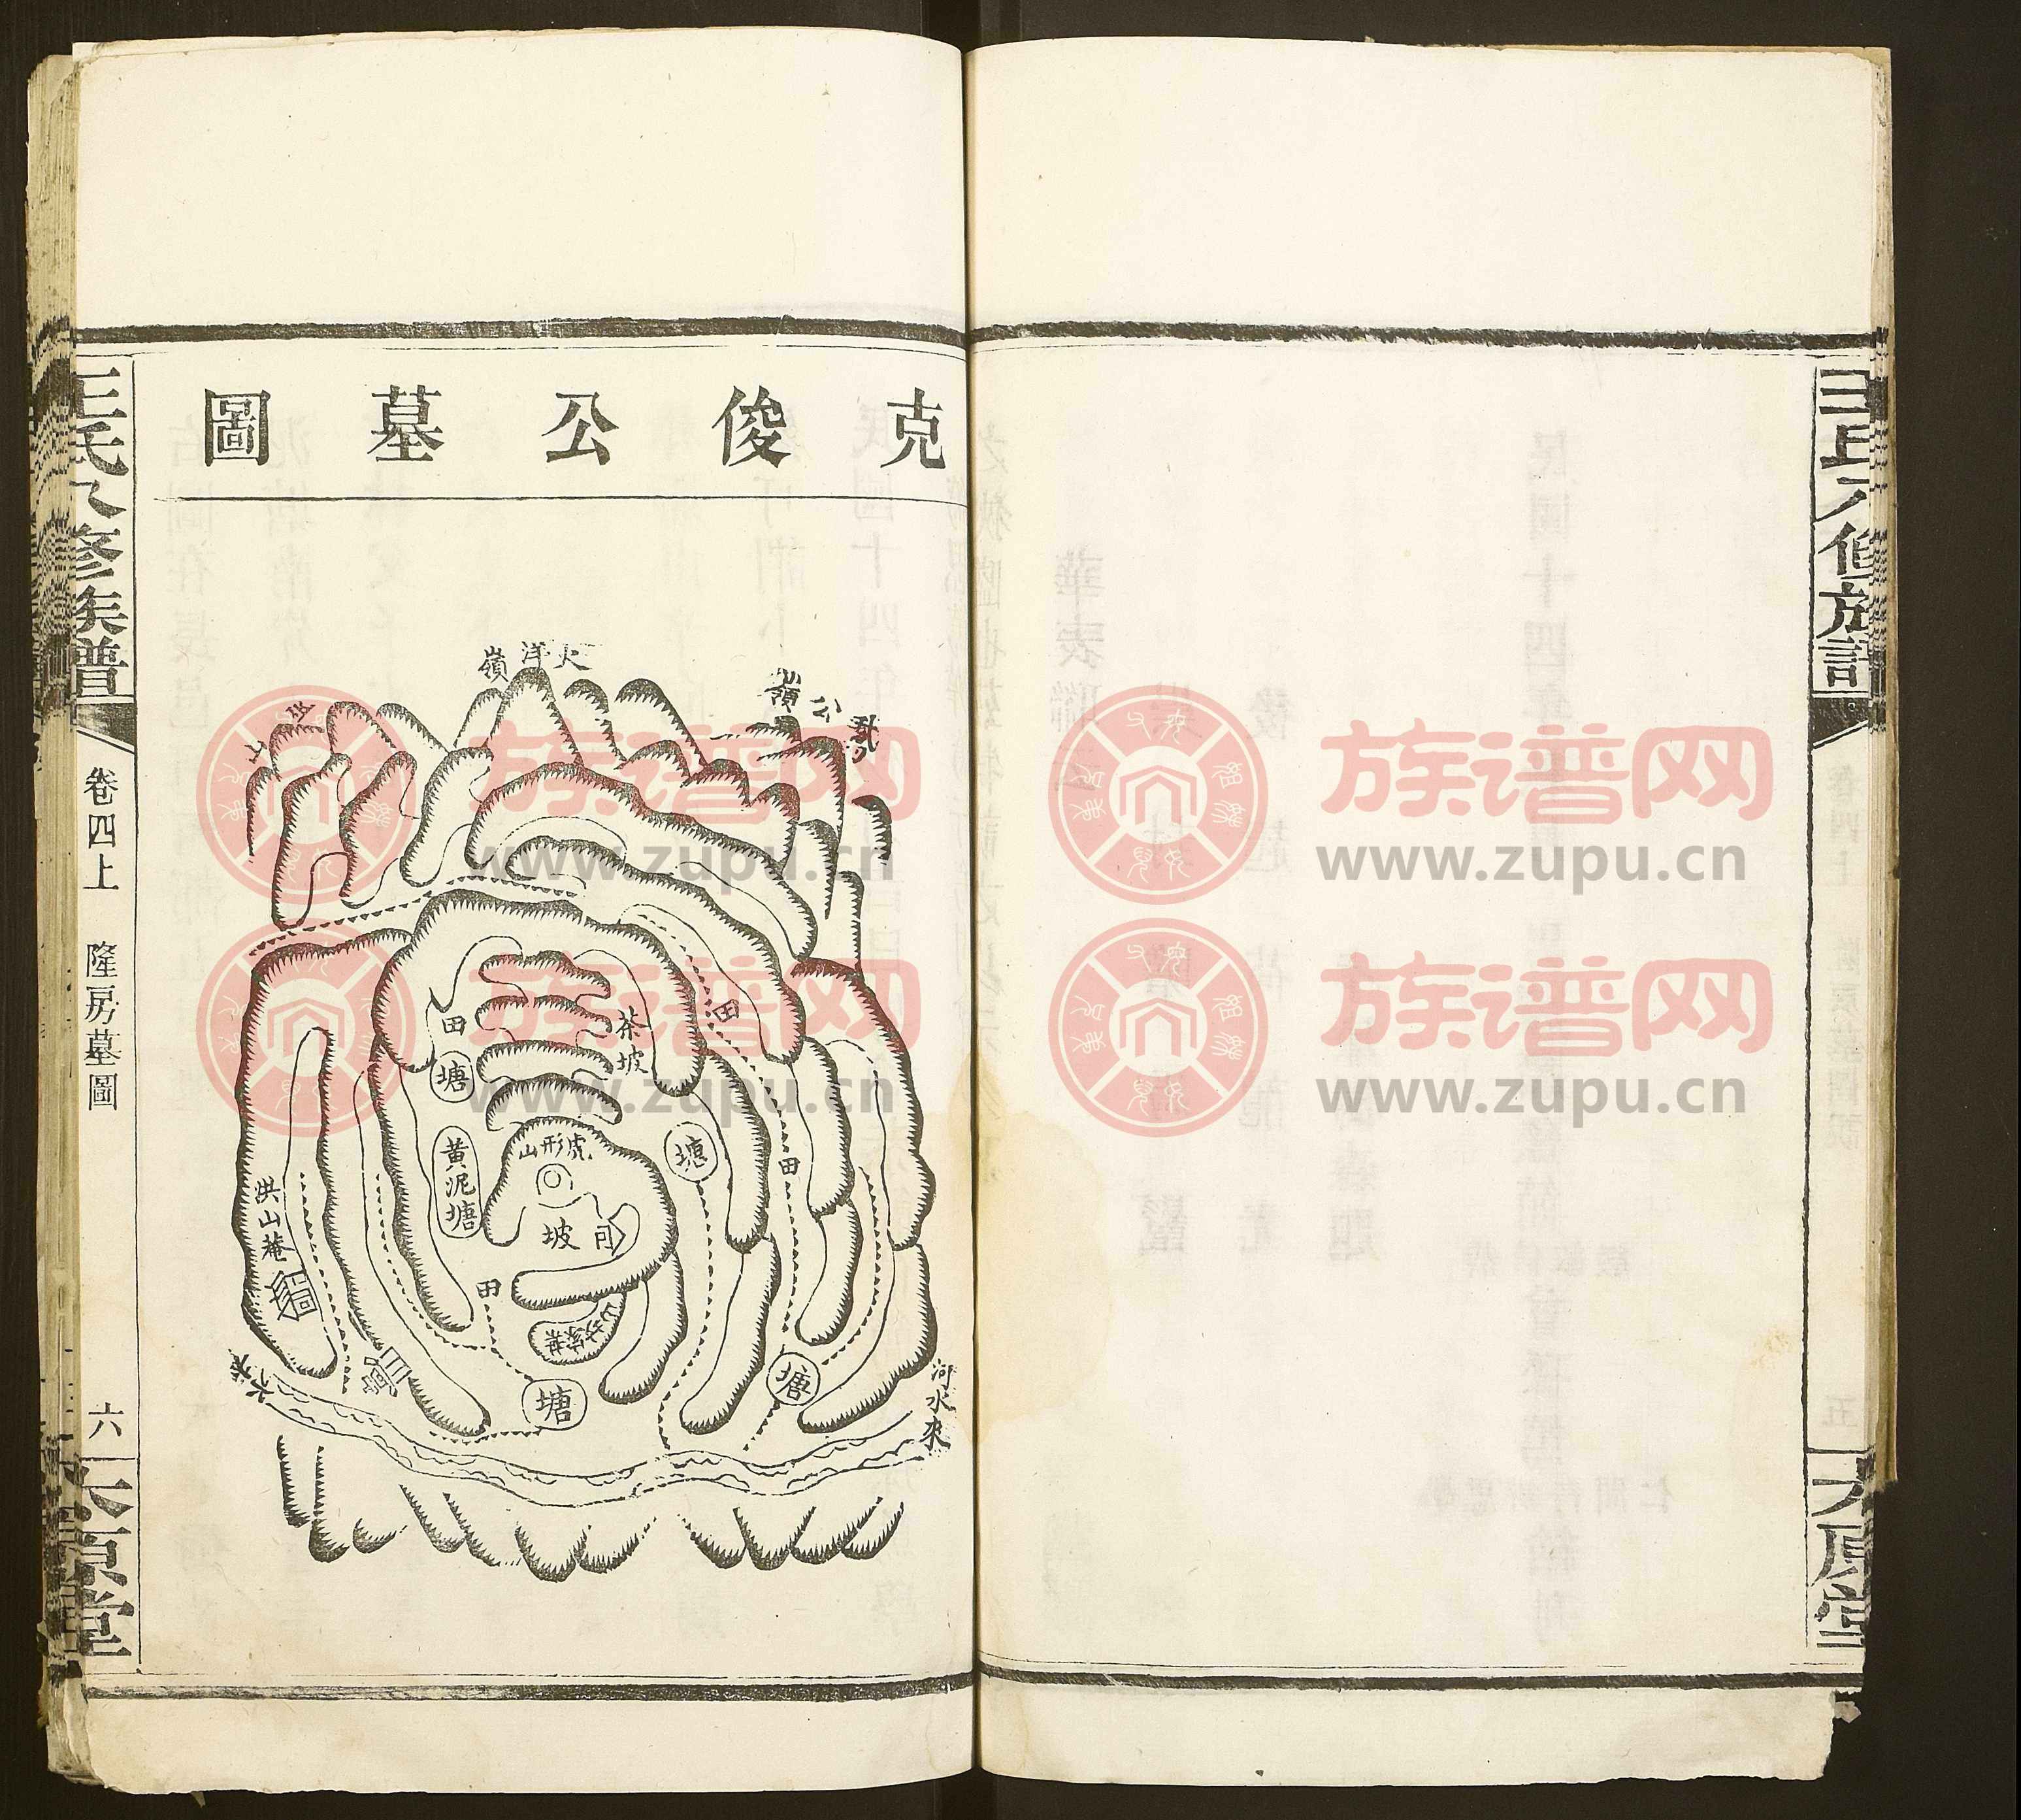 克俊公墓圖
大洋嶺
公嶺
山
田
茶坡
田
塘
虎形山
塘
田
黃泥塘
坡
洪山菴
田
塘
塘
河水來
王氏八修族譜
卷四上 隆房墓圖
六
太原堂
王氏八修族譜
太原堂
族谱网
www.zupu.cn
族谱网
www.zupu.cn
族谱网
www.zupu.cn
族谱网
www.zupu.cn